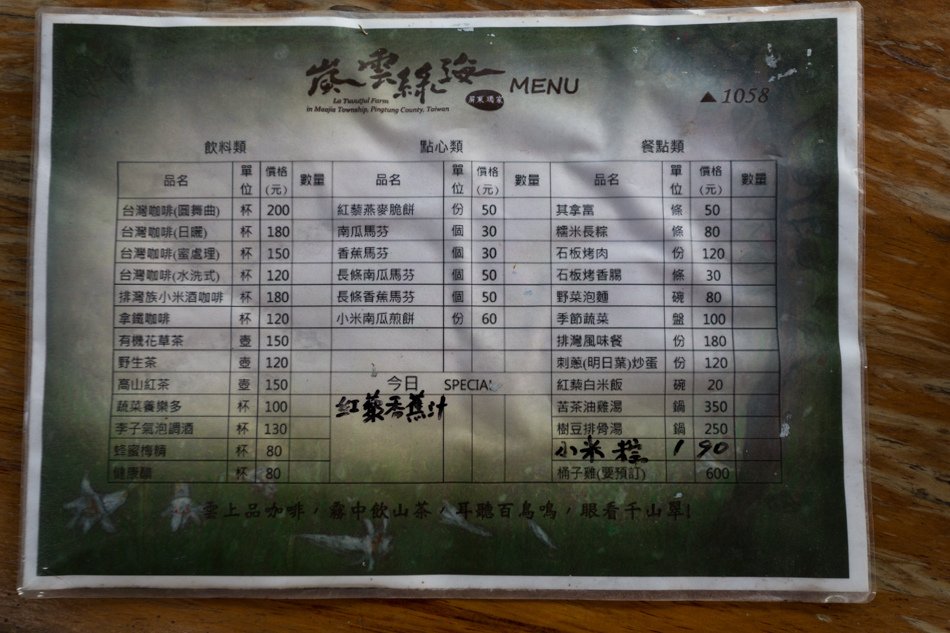 嵐雲絲海 MENU
La Yunutful Farm 屏東瑪家
in Maajia Township, Pingtung County, Taiwan
▲1058
飲料類 點心類 餐點類
品名 單位 價格(元) 數量 品名 單位 價格(元) 數量 品名 單位 價格(元) 數量
台灣咖啡(圓舞曲) 杯 200 紅藜燕麥脆餅 份 50 其拿富 條 50
台灣咖啡(日曬) 杯 180 南瓜馬芬 個 30 糯米長粽 條 80
台灣咖啡(蜜處理) 杯 150 香蕉馬芬 個 30 石板烤肉 份 120
台灣咖啡(水洗式) 杯 120 長條南瓜馬芬 個 50 石板烤香腸 條 30
排灣族小米酒咖啡 杯 180 長條香蕉馬芬 個 50 野菜泡麵 碗 80
拿鐵咖啡 杯 120 小米南瓜煎餅 份 60 季節蔬菜 盤 100
有機花草茶 壺 150 排灣風味餐 份 180
野生茶 壺 120 刺蔥(明日葉)炒蛋 份 120
高山紅茶 壺 150 今日 SPECIAL 紅藜白米飯 碗 20
蔬菜養樂多 杯 100 紅藜香蕉汁 苦茶油雞湯 鍋 350
李子氣泡調酒 杯 130 樹豆排骨湯 鍋 250
蜂蜜梅精 杯 80 小米粽 1 90
健康醋 杯 80 桶子雞(要預訂) 600
雲上品咖啡，霧中飲山茶，耳聽百鳥鳴，眼看千山翠!